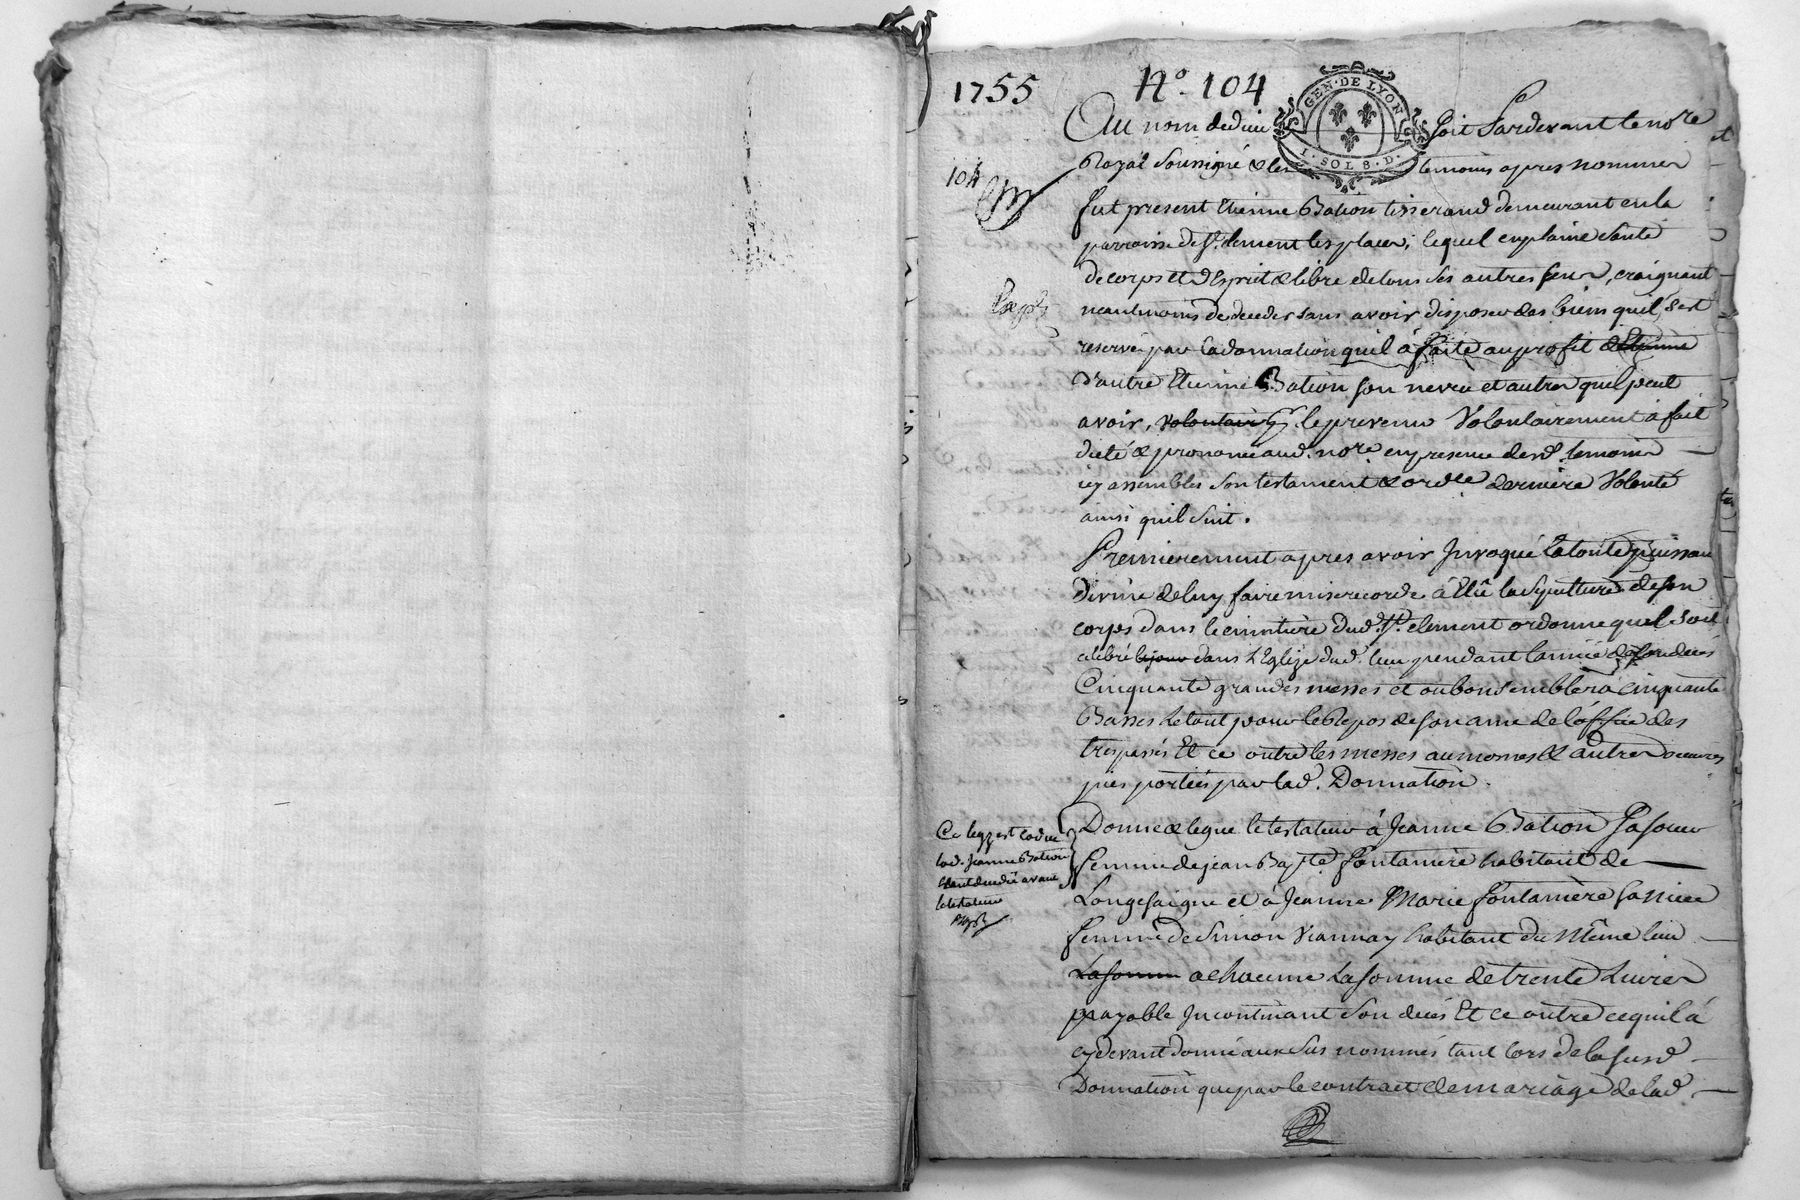 1755
N.o 104
GEN. DE LYON
1. SOL 8. D.
104
Au nom de dieu soit Pardevant le no.re
Royal soussigné & les temoins apres nommes
fut present Etienne Bation tisserand demeurant en la
parroisse de S.t clement les places, lequel en plaine santé
de corps et d'Esprit & libre de tous ses autres sens, craignant
neantmoins de deceder sans avoir disposer des biens quil s'est
reservé par la donnation quil á faite au profit d'Etienne
d'autre Etienne Bation son neveu et autres quil peut
avoir, volontair le prevenu Volontairement a fait
dicté & prononcé aud. no.re en presence desd. temoins
icy assemblés son testament & ord.re derniere Volonté
ainsi quil suit.
Premierement apres avoir Invoqué la toute puissan
divine de luy faire misericorde á Elû la sepulture de son
corps dans le cimitière dud. S.t clement ordonne quil soit
célébré dans L'Eglize dud. lieu pendant l'année de son decés
Cinquante grandes messes et ou bon semblera cinquante
Basses Le tout pour le Repos de son ame de des
trepassés Et ce outre les messes aumosnes & autres oeuvres
pies portées par lad. Donnation.
Donne & legue le testateur á Jeanne Bation sa soeur
femme de jean Bap.te fontanière habitant de
Longesaigne et á Jeanne Marie fontanière sa niece
femme de Simon Viannay habitant du Même lieu
La somme a chacune La somme de trente Livres
payable Incontinant son decés Et ce outre ce quil á
cy devant donné aux sus nommés tant lors de la susd.
Donnation que par le contrait de mariage de lad.
Ce legz est caduc
lad. Jeanne Bation
etant decedée avant
le testateur